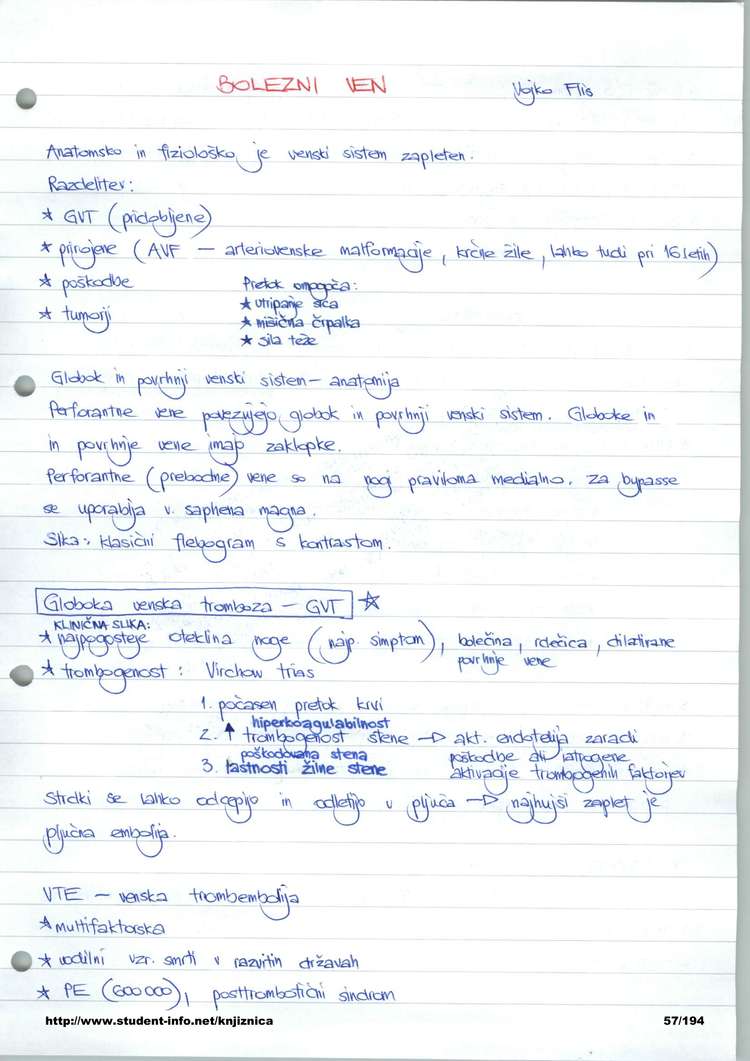 BOLEZNI VEN
Vojko Flis
Anatomsko in fiziološko je venski sistem zapleten.
Razdelitev:
* GVT (pridobljene)
* prirojene (AVF – arteriovenske malformacije, krčne žile, lahko tudi pri 16 letih)
* poškodbe
* tumorji
Pretok omogoča:
* utripanje srca
* mišična črpalka
* sila teže
Globok in površhnji venski sistem – anatomija
Perforantne vene povezujejo globok in površhnji venski sistem. Globoke in
in površhnje vene imajo zaklopke.
Perforantne (prebodne) vene so na nogi praviloma medialno. Za bypasse
se uporablja v. saphena magna.
Slika: klasični flebogram s kontrastom.
Globoka venska tromboza – GVT *
KLINIČNA SLIKA:
* najpogosteje oteklina noge (najp. simptom), bolečina, rdečica, dilatirane
površhnje vene
* trombogenost: Virchow trias
1. počasen pretok krvi
hiperkoagulabilnost
2. ↑ trombogenost stene → akt. endotelija zaradi
poškodovana stena poškodbe ali iatrogene
3. lastnosti žilne stene aktivacije trombogenih faktorjev
Strdki se lahko odcepijo in odletijo v pljuča → najhujši zaplet je
pljučna embolija.
VTE – venska trombembolija
* multifaktorska
* vodilni vzr. smrti v razvitih državah
* PE (600 000), posttrombotični sindrom
http://www.student-info.net/knjiznica
57/194